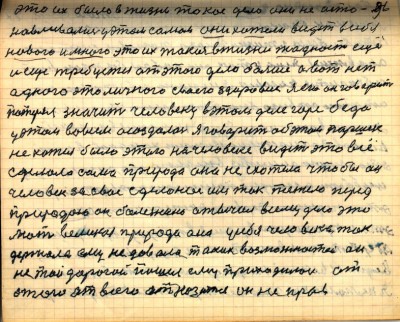 это их было в жизни такое дело они не это -
навязывали у этом самом они хотели видеть в себя
нового и много это их такая в жизни жадность ещё
и ещё требуется от этого дело больше а вот нет
одного это личного своего здоровия я его он говорит
потерял значит человеку в этом деле горе беда
у этом вовсем опоздал я говорит об этом парнишк
не хотел было этого на человеке видеть это всё
сделала сама природа она не хотела чтобы он
человек за своё сделоное им так тяжело перед
природою он болезнено отвечал всему дело это
мать великая природа она у себя человека так
держала ему не довала таких возможностей он
не той дорогой пошел ему приходилося от
этого от всего он не прав